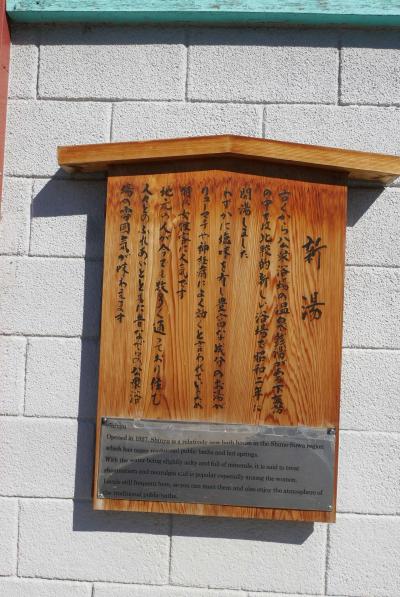 新湯
古くから公衆浴場の温泉銭湯がある下諏訪
の中では比較的新しい浴場で昭和二年に
開湯しました
わずかに塩味を有し豊富な成分のお湯が
リューマチや神経痛によく効くと言われていますが
特に女性客に人気です
地元の人々が今でも数多く通っており住む
人々とのふれあいとともに昔ながらの公衆浴
場の雰囲気が味わえます
Shinyu
Opened in 1927, Shinyu is a relatively new bath house in the Shimo-Suwa region
which has many traditional public baths and hot springs.
With the water being slightly salty and full of minerals, it is said to treat
rheumatism and neuralgia and is popular especially among the women.
Locals still frequent here, so you can meet them and also enjoy the atmosphere of
the traditional public baths.